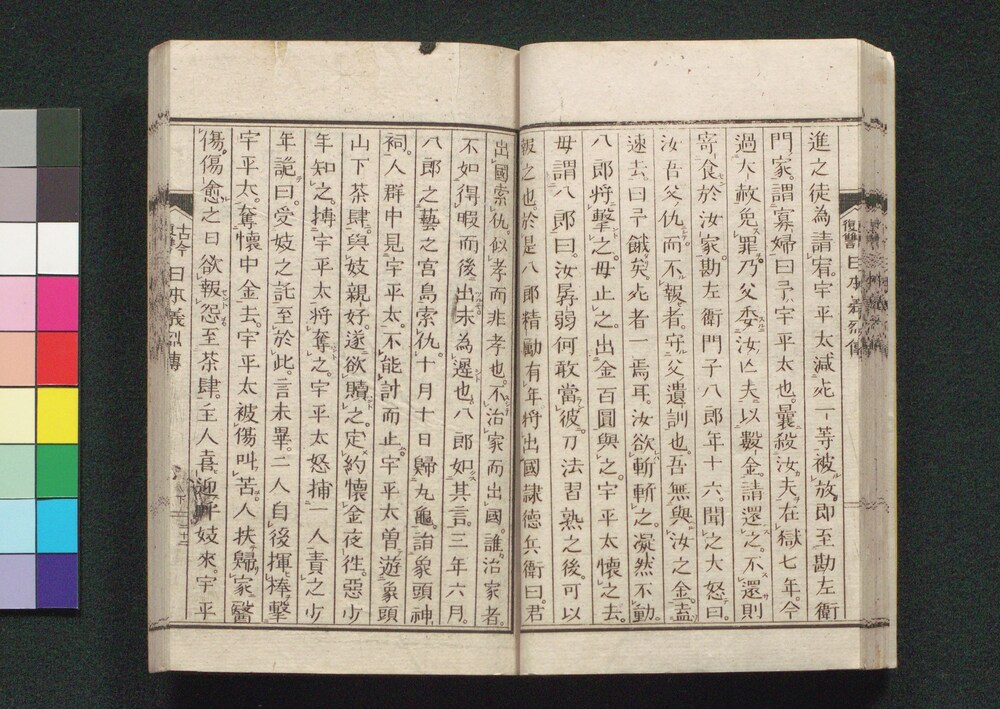 進之徒為請宥。宇平太減死一等被放。即至勘左衛
門家。謂寡婦曰。予宇平太也。曩殺汝夫。在獄七年。今
過大赦免罪。乃父委汝亡夫以數金。請還之。不還則
寄食於汝家。勘左衛門子八郎年十六。聞之大怒曰。
汝吾父仇。而不報者。守父遺訓也。吾無與汝之金。盍
速去。曰。予餓矣。死者一焉耳。汝欲斬斬之。凝然不動。
八郎将擊之。母止之。出金百圓與之。宇平太懷之去。
母謂八郎曰。汝孱弱何敢當彼。刀法習熟之後。可以
報之也。於是八郎精勵有年。将出國。隷德兵衛曰。君
出國索仇。似孝而非孝也。不治家而出國。誰治家者。
不如得暇而後出。未為遲也。八郎如其言。三年六月。
八郎之藝之宮島索仇。十月十日歸丸龜。詣象頭神
祠。人群中見宇平太。不能討而止。宇平太曽遊象頭
山下茶肆。與妓親好。遂欲贖之。定約懷金夜徃。惡少
年知之。摶宇平太将奪之。宇平太怒捕一人責之。少
年詭曰。受妓之託至於此。言未畢。二人自後揮棒擊
宇平太。奪懷中金去。宇平太被傷叫苦。人扶歸家。醫
傷。傷愈之日。欲報怨至茶肆。主人喜迎呼妓來。宇平
古今復讐 日本義烈傳